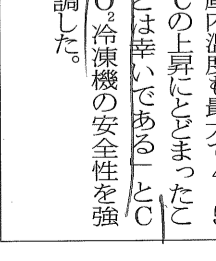 庫内温度も最大
Cの上昇にとどまったこ
とは幸いである」とC
O₂冷凍機の安全性を強
調した。